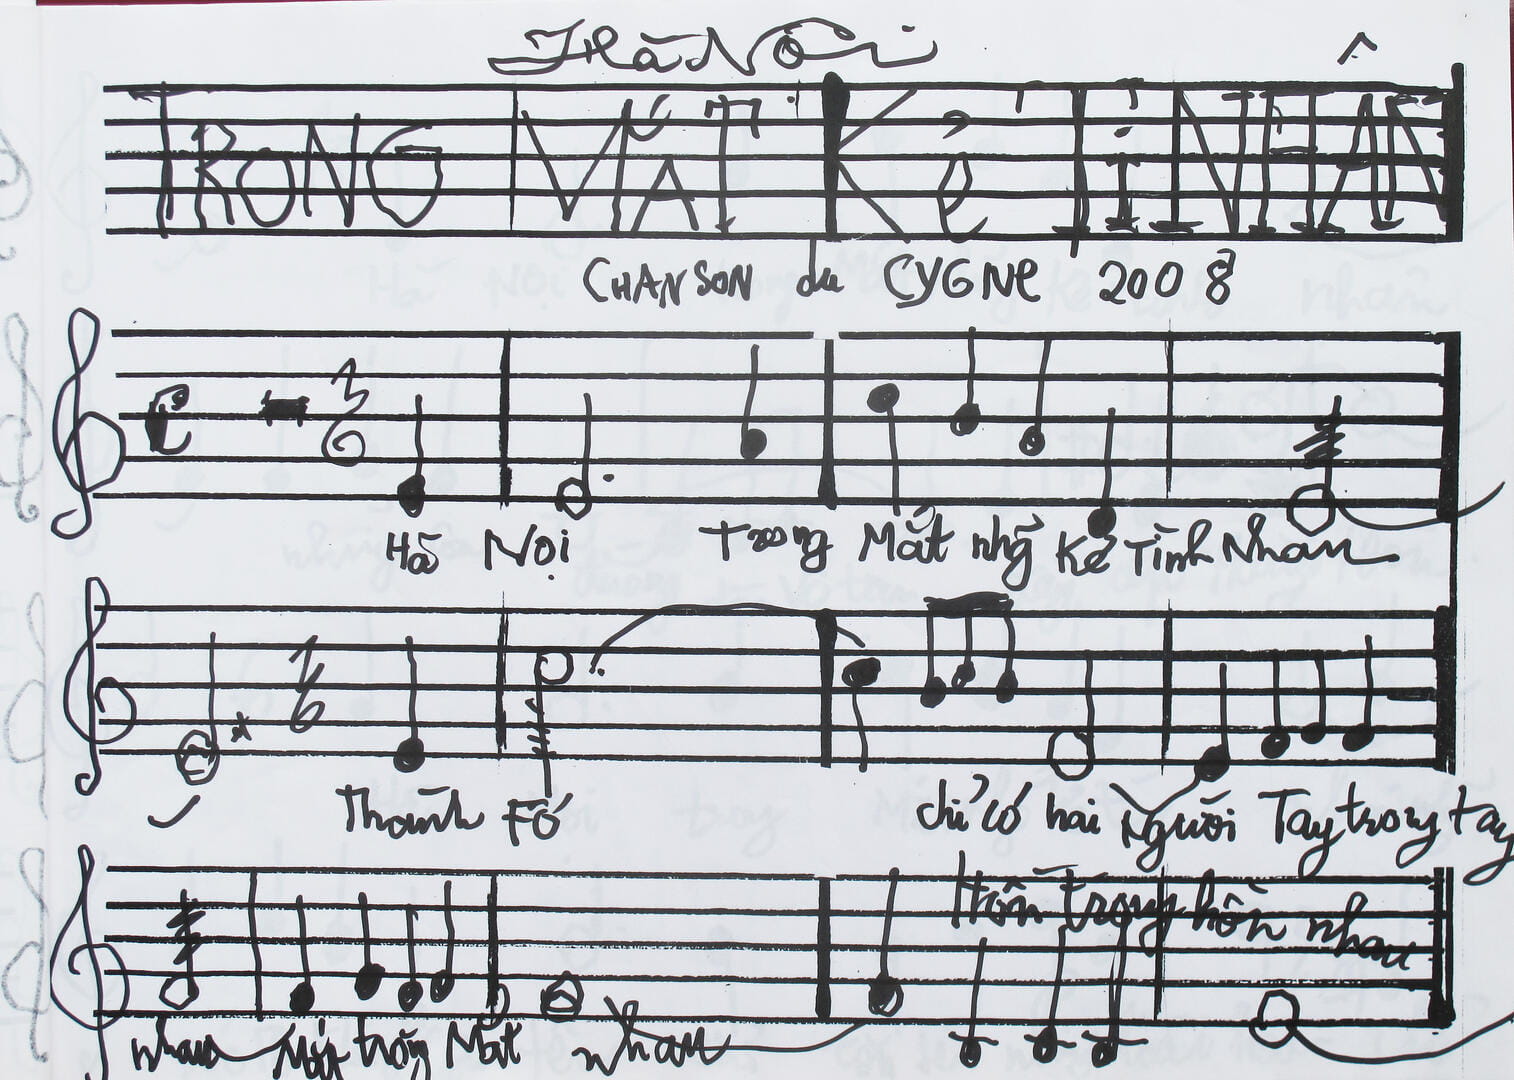 Hà Nội
TRONG MẮT KẺ TÌNH NHÂN
CHANSON du CYGNE 2008
Hà Nội trong Mắt nhỡ Kẻ Tình Nhân
Thành Fố chỉ có hai người Tay trong tay
Hồn Trong hồn nhau
nhau Mắt trong Mắt nhau